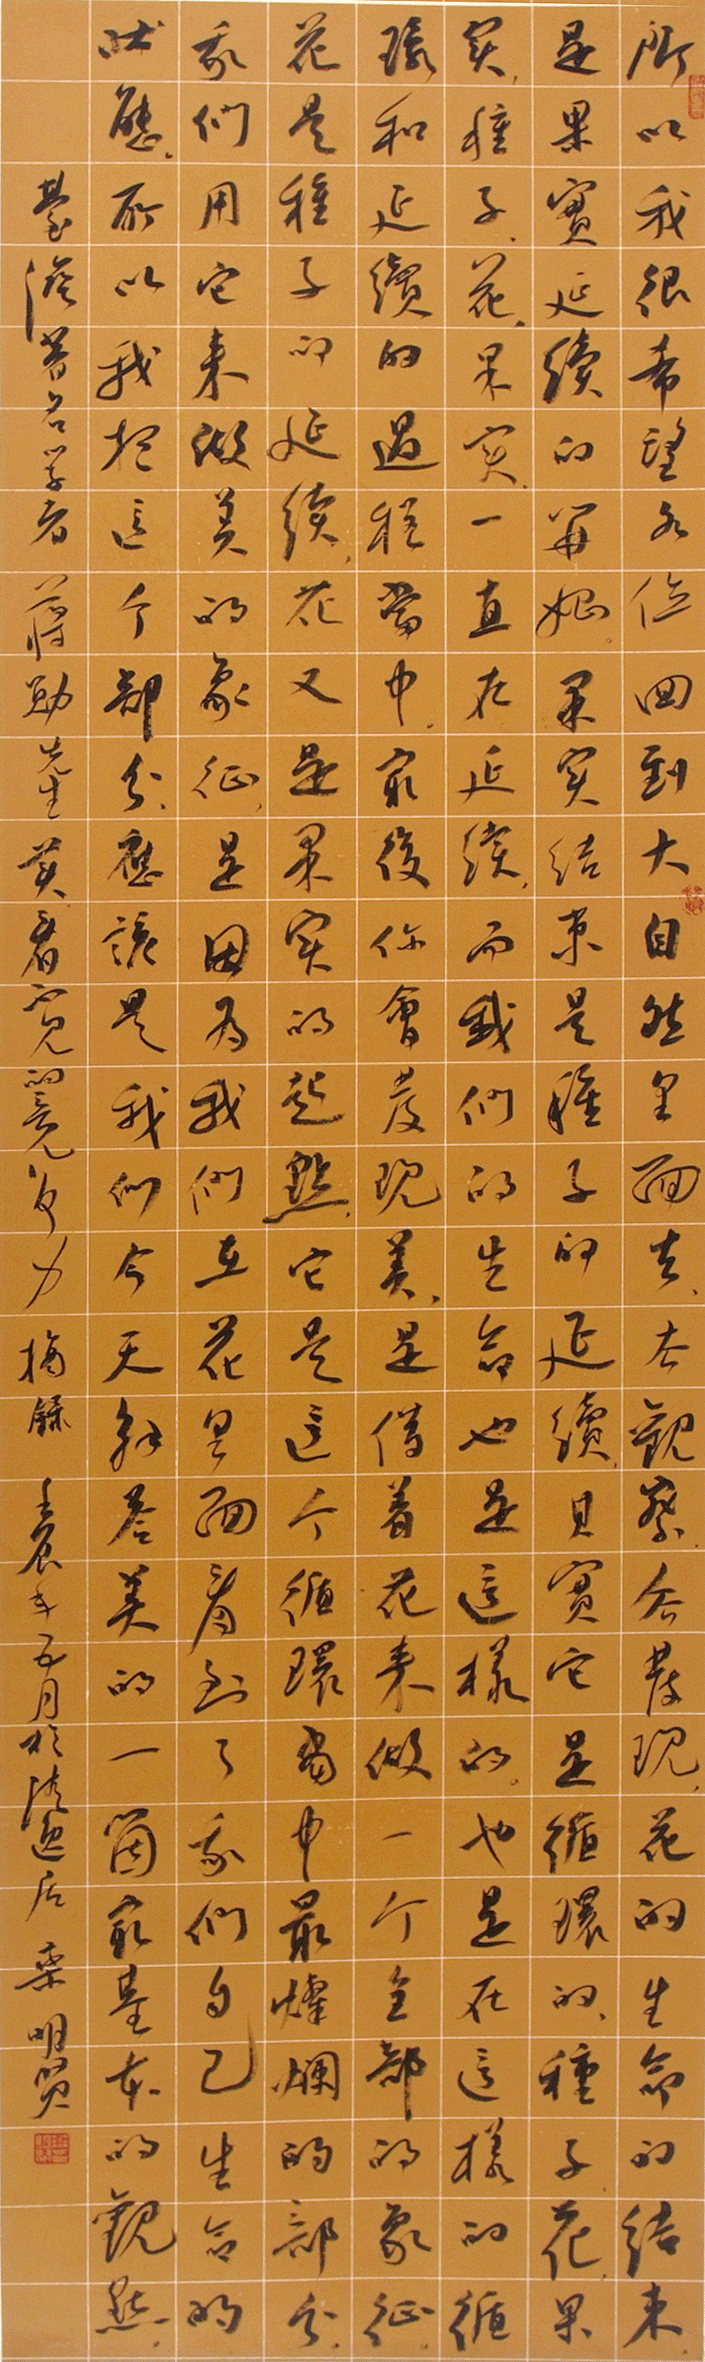 所以我很希望各位回到大自然里面去、去觀察会發現、花的生命的结束
是果實延續的開始。果实结束是種子的延續、其實它是循環的、種子、花、果
实、種子、花、果实、一直在延续、而我們的生命也是這樣的。也是在這樣的循
環和延續的過程當中。最後你會發現美、是借著花来做一个全部的象征、
花是種子的延续、花又是果实的起點、它是這个循環當中最燦爛的部分、
我們用它来做美的象征、是因為我們在花里面看到了我們自己生命的
状態、所以我想這个部分、應該是我們今天解答美的一個最基本的觀點、
臺灣著名学者蔣勳先生 美看不見的競争力 摘録 壬辰年五月於 居 栗明賢